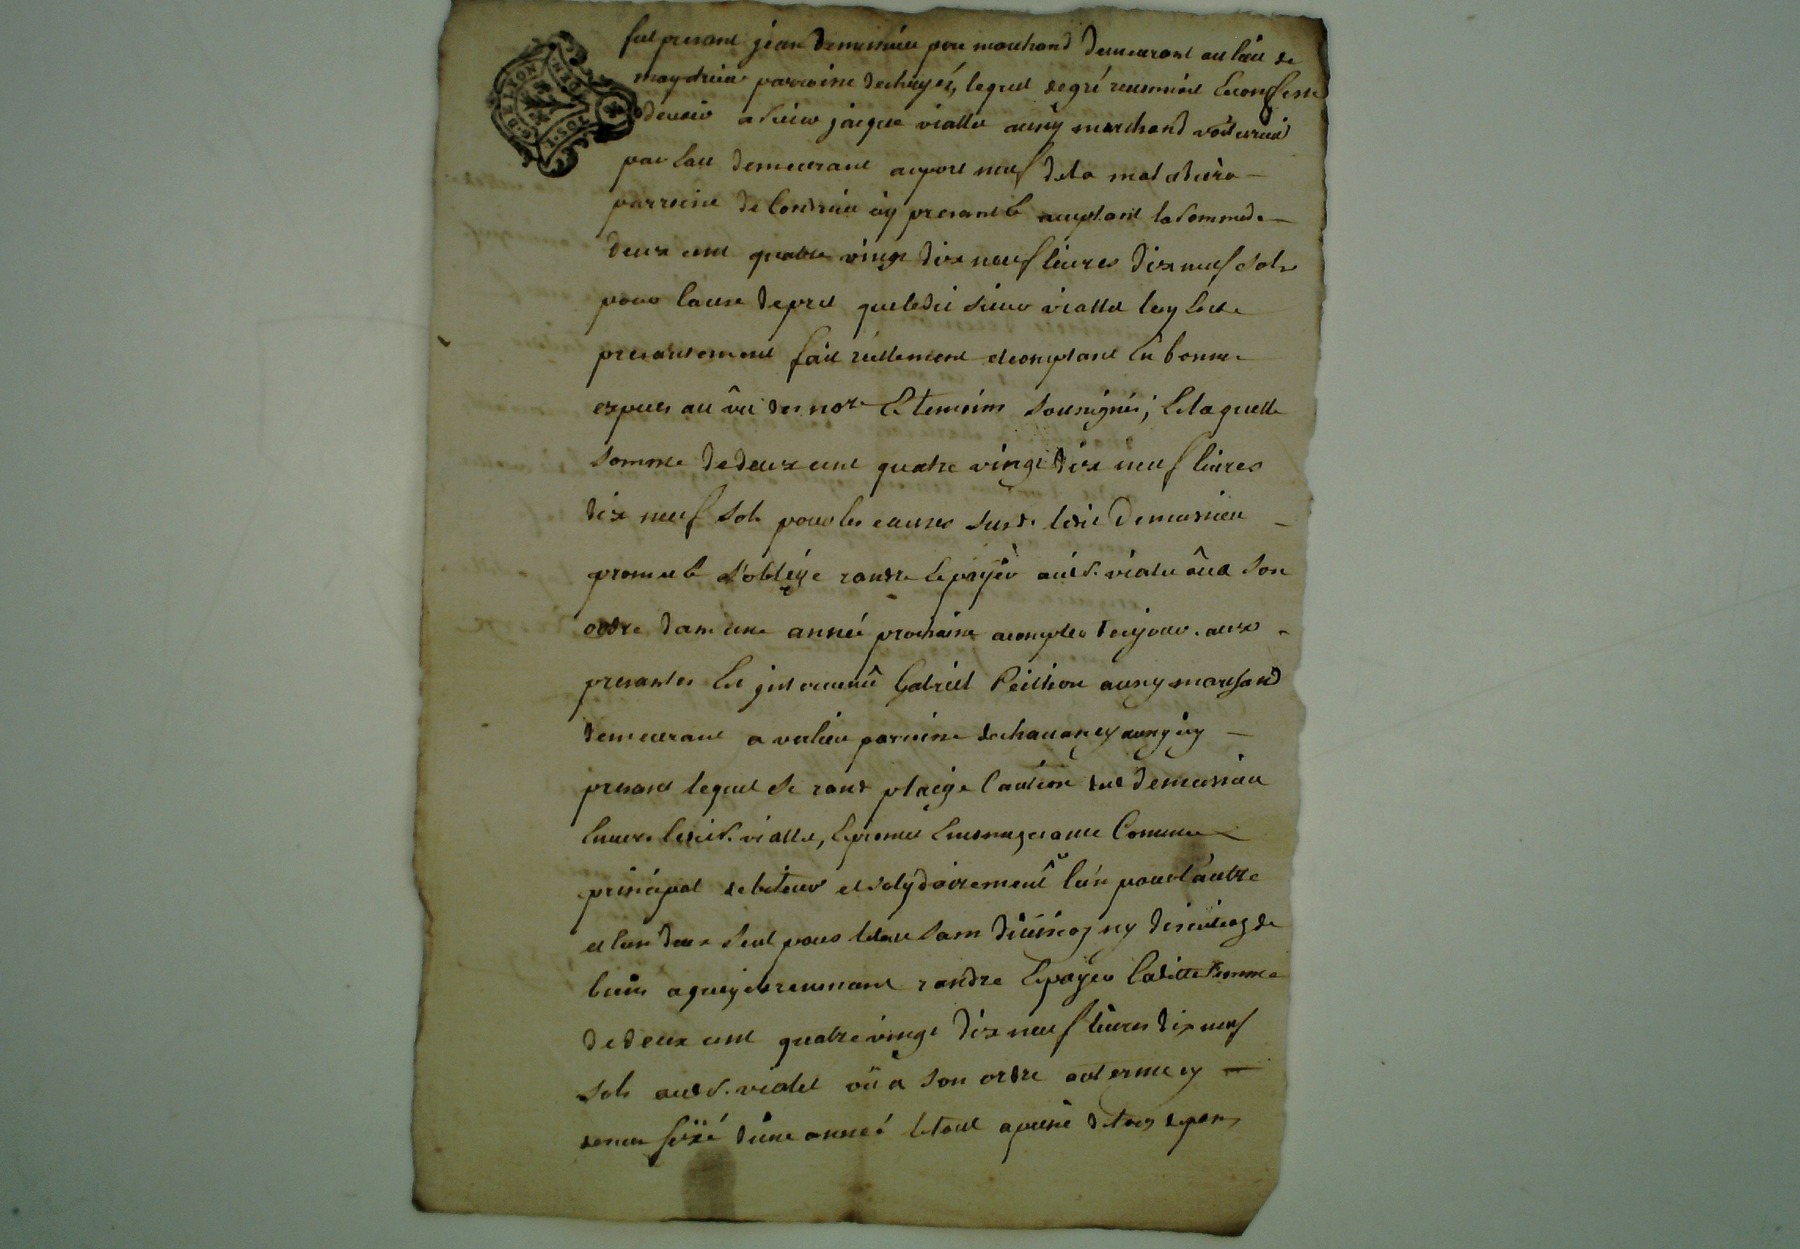 fut presant jean Demussieu pere marchand demeurant au lieu de
parroisse lequel de gré reconnoist Econfesse
devoir a sieur jacque viallet aussy marchand voiturier
par eau demeurant au port neuf de la maladiere
parroisse de Condrieu icy presant & acceptant la somme de
deux cent quatre vingt dix neuf livres dix neuf sols
pour cause de pret que ledit sieur viallet luy a
presantement fait réellement et comptant En bonnes
especes au vû des no.re Et temoins soussignés, Et laquelle
somme de deux cent quatre vingt dix neuf livres
dix neuf sols pour les causes susd. ledit Demussieu
promet & s'oblige randre Epayér aud s. viallet ôu a son
ordre dans une année prochaine a compter de ce jour. aux
presantes Est intervenû Gabriel Peillion aussy marchand
demeurant a verlieu parroisse de chavanay aussy icy
presant lequel se rand plaige Caution dud Demussieu
Envers ledit s. viallet, Epromet Comme
principal debiteur et solydairement l'ûn pour l'autre
et l'un deux seul pour le tout sans divission ny discution de
biens randre Epayer laditte somme
de deux cent quatre vingt dix neuf livres dix neuf
sols aud s. viallet oû a son ordre au terme cy
dessus fixé d'une année le tout a peine de tous depens
G. DE LYON